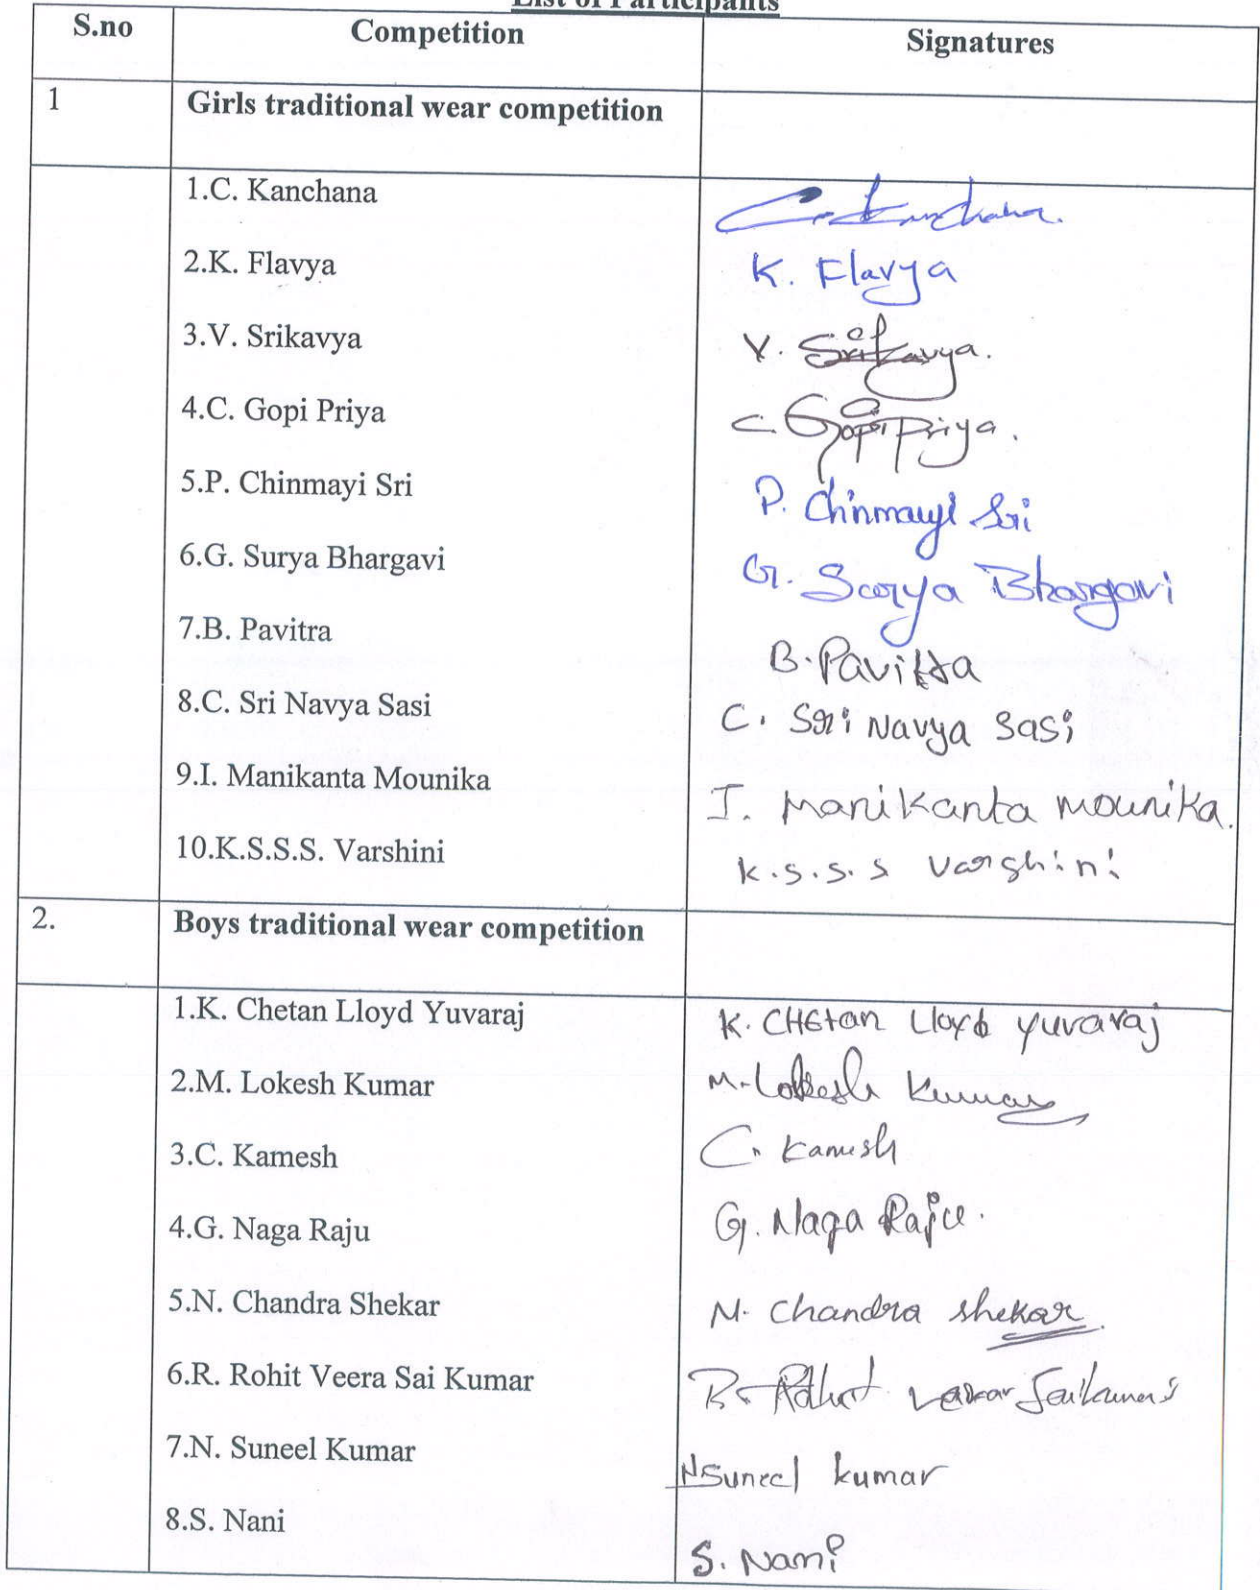 List of Participants
S.no Competition Signatures
1 Girls traditional wear competition
1.C. Kanchana C. Kanchana.
2.K. Flavya K. Flavya
3.V. Srikavya V. Srikavya.
4.C. Gopi Priya C Gopi Priya.
5.P. Chinmayi Sri P. Chinmayi Sri
6.G. Surya Bhargavi G. Surya Bhargavi
7.B. Pavitra B. Pavitra
8.C. Sri Navya Sasi C. Sri Navya Sasi
9.I. Manikanta Mounika I. Manikanta Mounika.
10.K.S.S.S. Varshini K.S.S.S Varshini
2. Boys traditional wear competition
1.K. Chetan Lloyd Yuvaraj K. CHEtan Lloyd Yuvaraj
2.M. Lokesh Kumar M. Lokesh Kumar
3.C. Kamesh C. Kamesh
4.G. Naga Raju G. Naga Raju.
5.N. Chandra Shekar N. Chandra Shekar
6.R. Rohit Veera Sai Kumar
7.N. Suneel Kumar N Suneel Kumar
8.S. Nani S. Nani